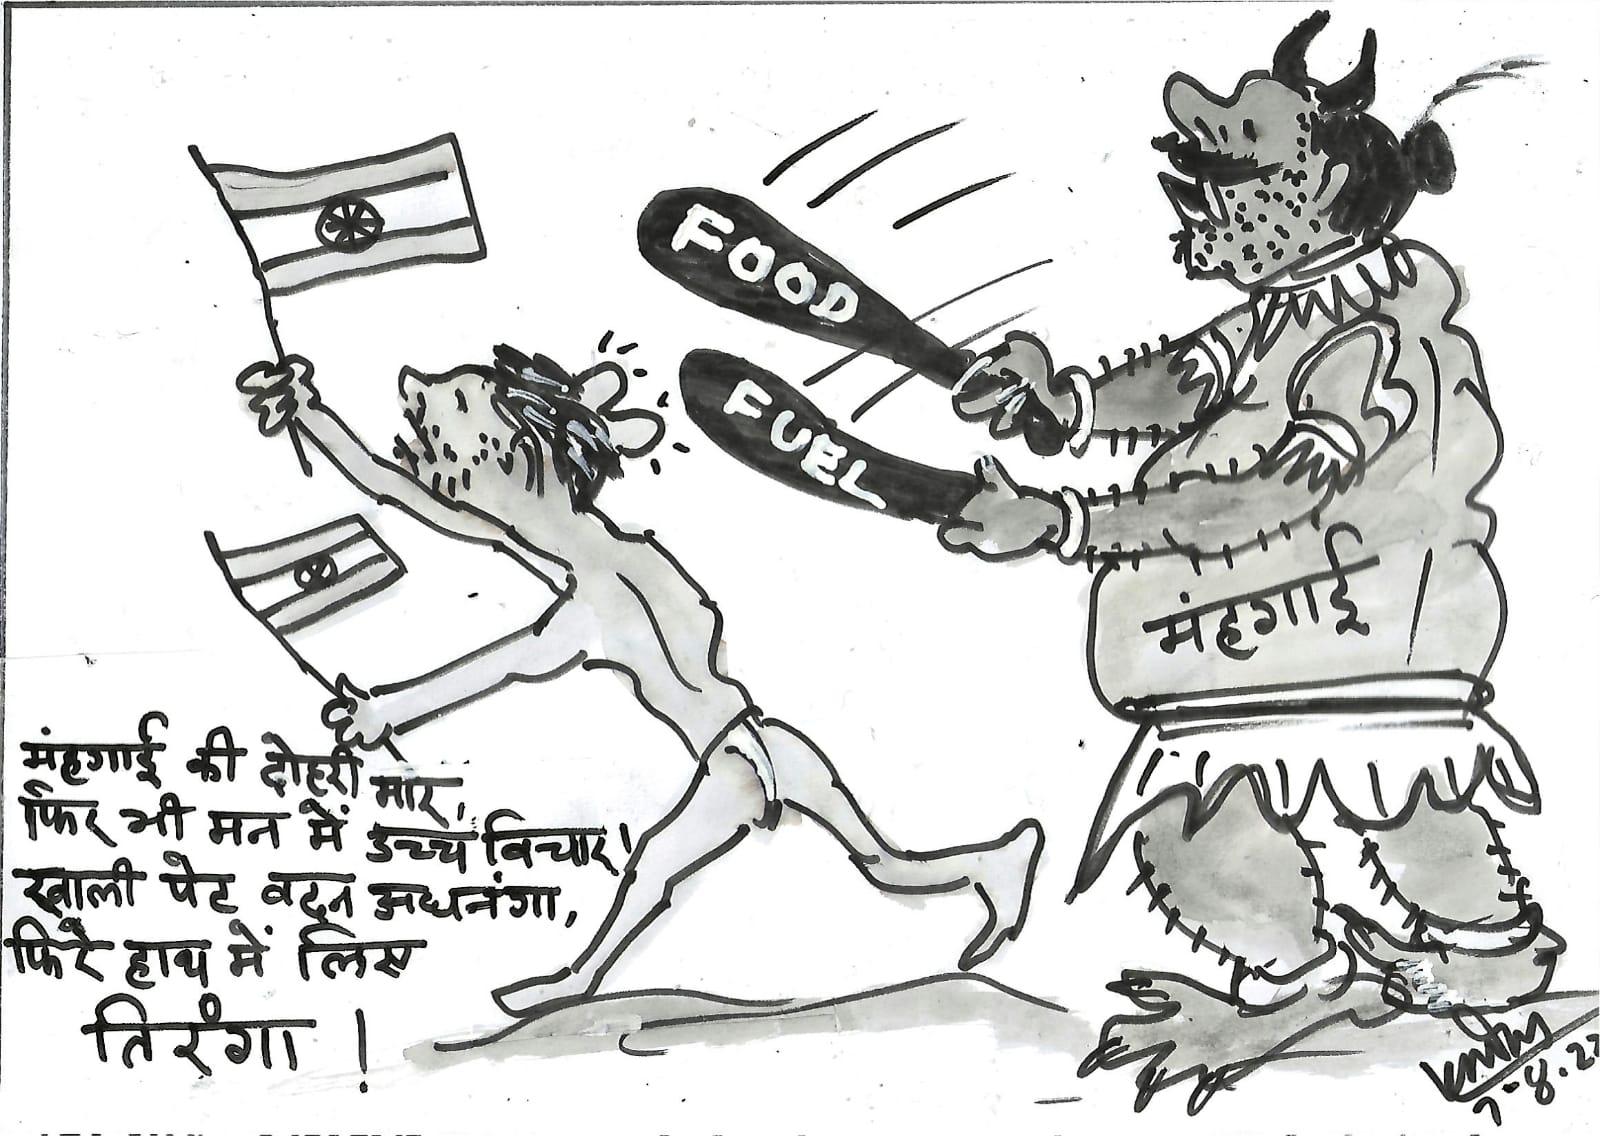 FOOD
FUEL
मंहगाई
मंहगाई की दोहरी मार,
फिर भी मन में उच्च विचार!
खाली पेट वदन अधनंगा,
फिरै हाथ में लिए
तिरंगा !